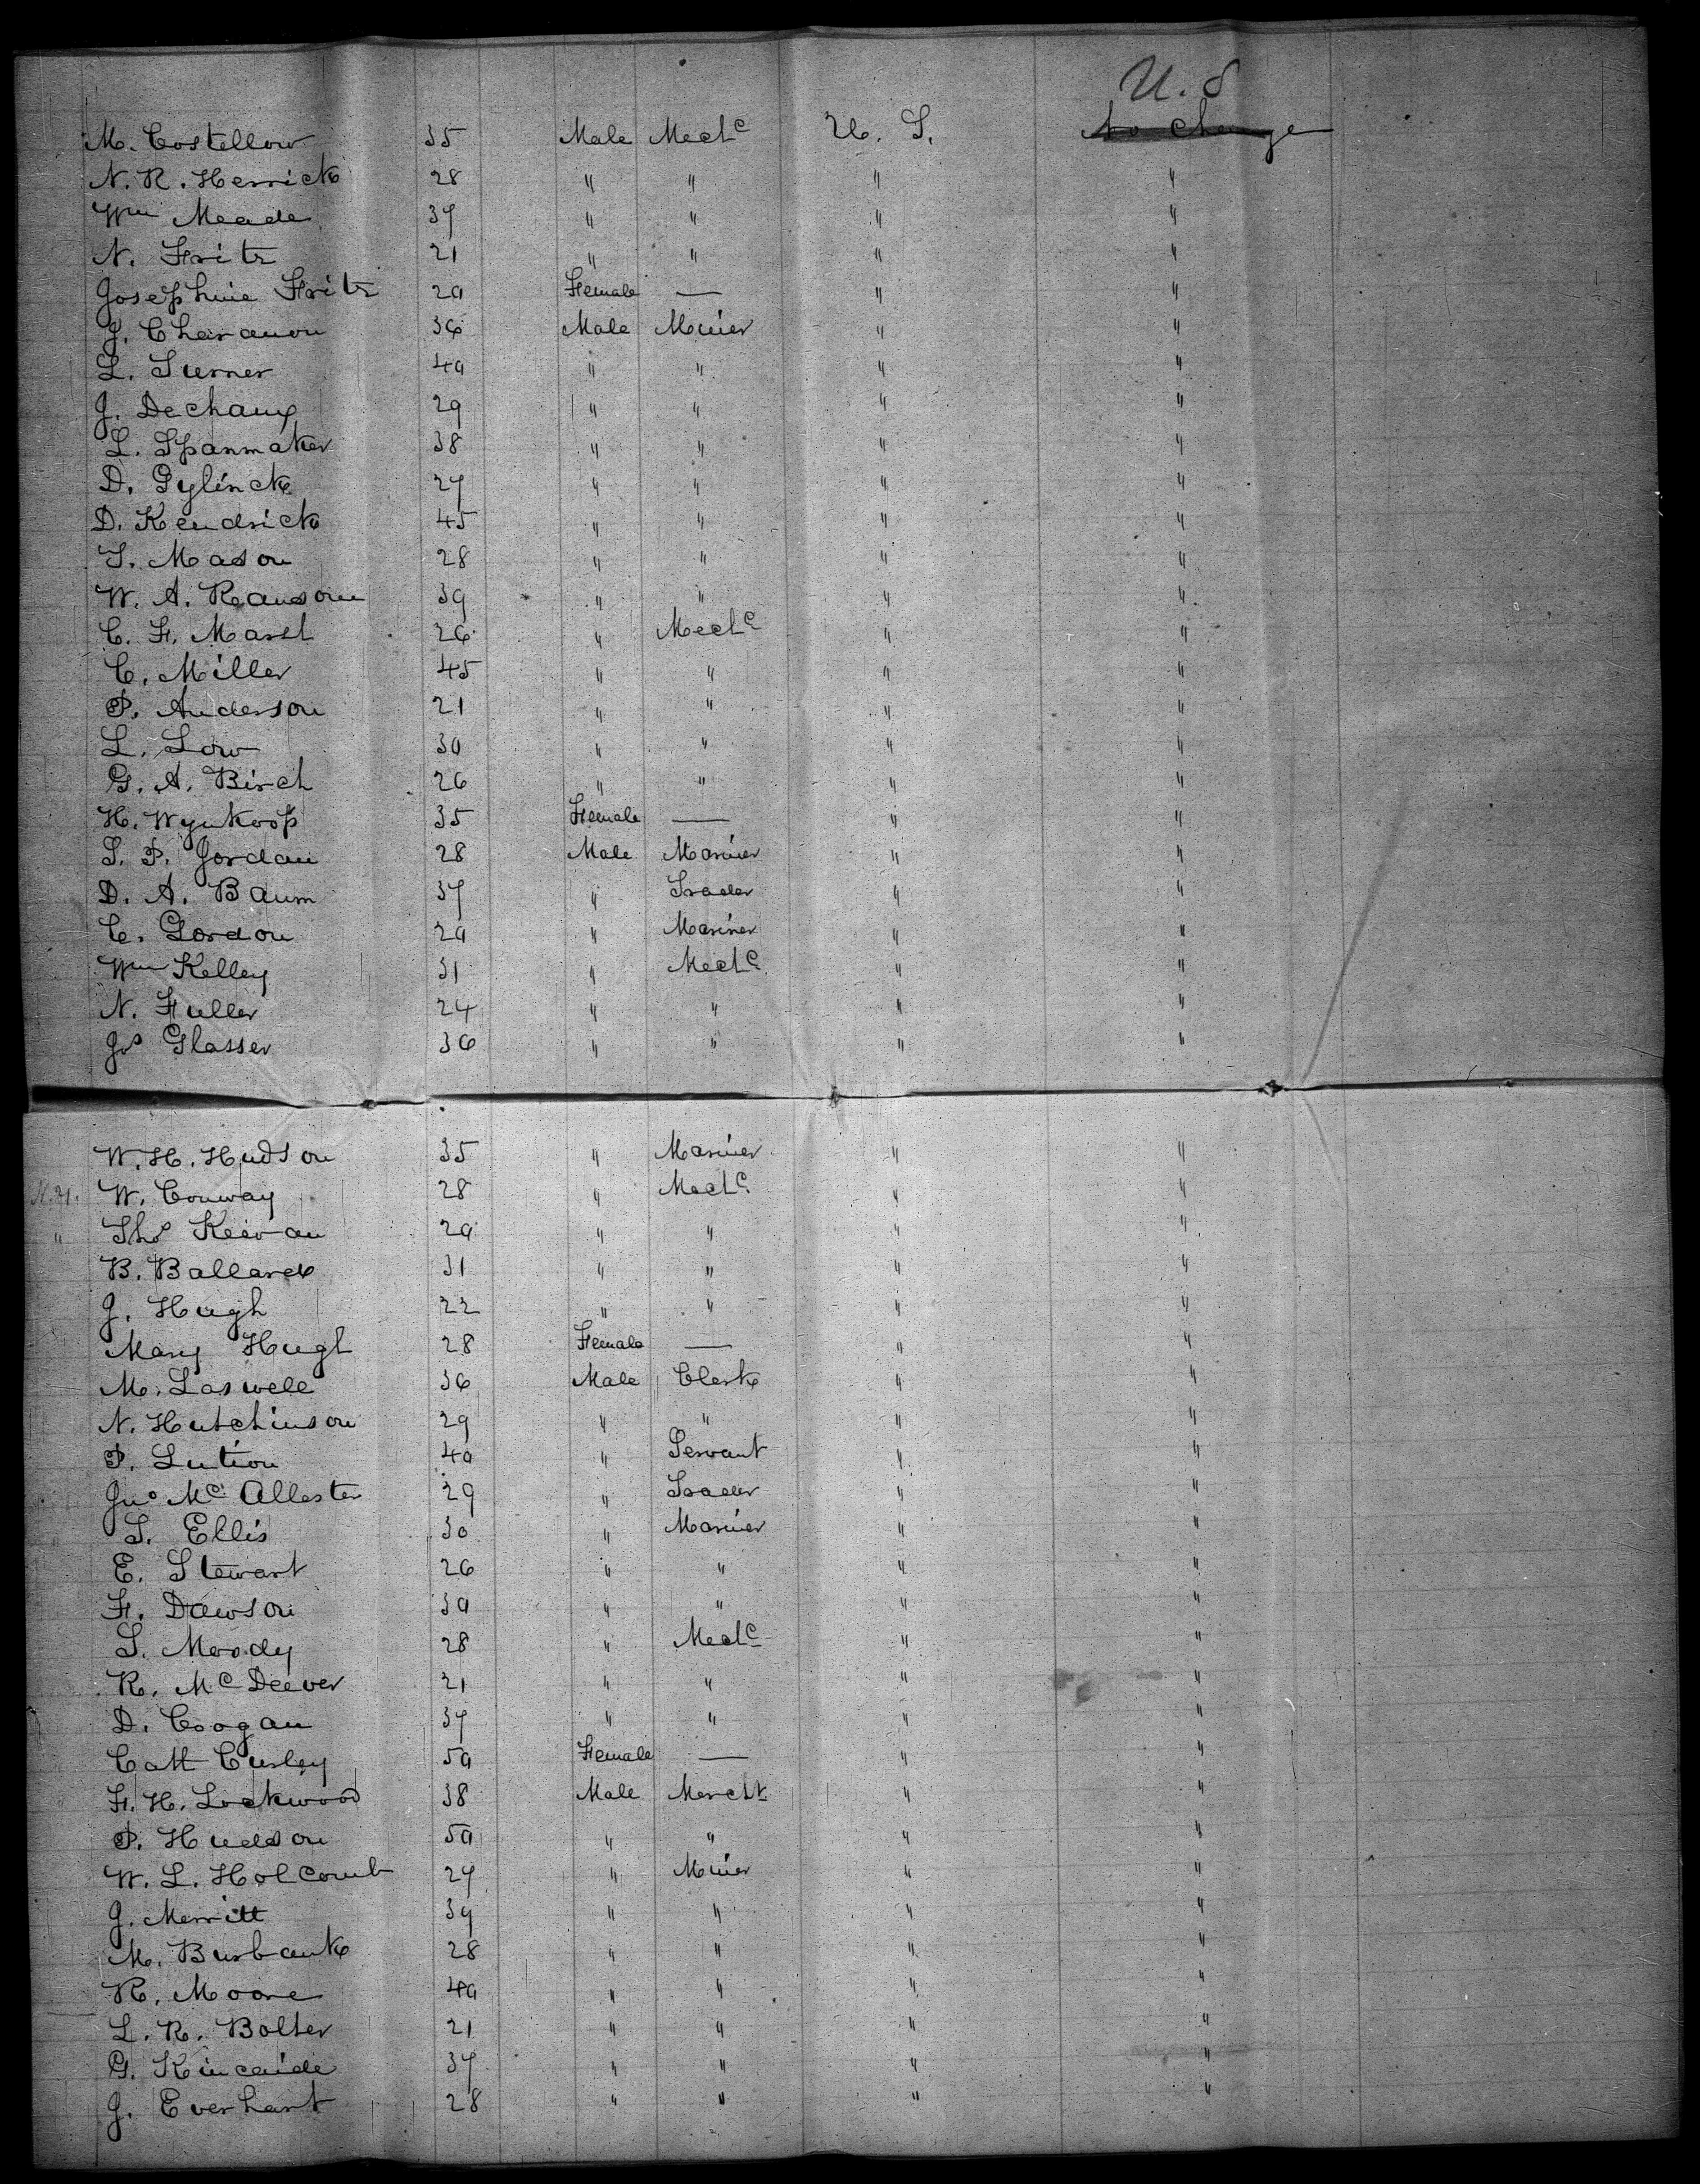 U. S
M. Costellow 35 Male Mech^c U. S. no change
N. R. Herrick 28 " " " "
W^m Meade 37 " " " "
N. Fritz 21 " " " "
Josephine Fritz 20 Female — " "
J. Charanon 36 Male Miner " "
L. Turner 40 " " " "
J. Dechaux 29 " " " "
L. Spanmaker 38 " " " "
D. Gylinck 27 " " " "
D. Kendrick 45 " " " "
T. Mason 28 " " " "
W. A. Ransome 39 " " " "
C. F. Marsh 26 " Mech^c " "
C. Miller 45 " " " "
P. Anderson 21 " " " "
L. Low 30 " " " "
G. A. Birch 26 " " " "
H. Wynkoop 35 Female — " "
S. P. Jordan 28 Male Mariner " "
D. A. Baum 37 " Trader " "
C. Gordon 20 " Mariner " "
W^m Kelley 31 " Mech^c " "
N. Fuller 24 " " " "
Jos Glasser 36 " " " "
W. H. Hudson 35 " Mariner " "
W. Conway 28 " Mech^c " "
" Tho^s Keevan 20 " " " "
B. Ballard 31 " " " "
J. Hugh 22 " " " "
Mary Hugh 28 Female — " "
M. Laswell 36 Male Clerk " "
N. Hutchinson 29 " " " "
P. Lution 40 " Servant " "
Jn^o M^c Allester 29 " Trader " "
T. Ellis 30 " Mariner " "
E. Stewart 26 " " " "
F. Dawson 30 " " " "
S. Moody 28 " Mech^c " "
R. M^c Deever 21 " " " "
D. Coogan 37 " " " "
Cath Curley 50 Female — " "
F. H. Lockwood 38 Male Mercht " "
P. Hudson 50 " " " "
W. L. Holcomb 27 " Miner " "
J. Merritt 39 " " " "
M. Burbank 28 " " " "
R. Moore 40 " " " "
L. R. Bolter 21 " " " "
G. Kincaide 37 " " " "
J. Everhart 28 " " " "